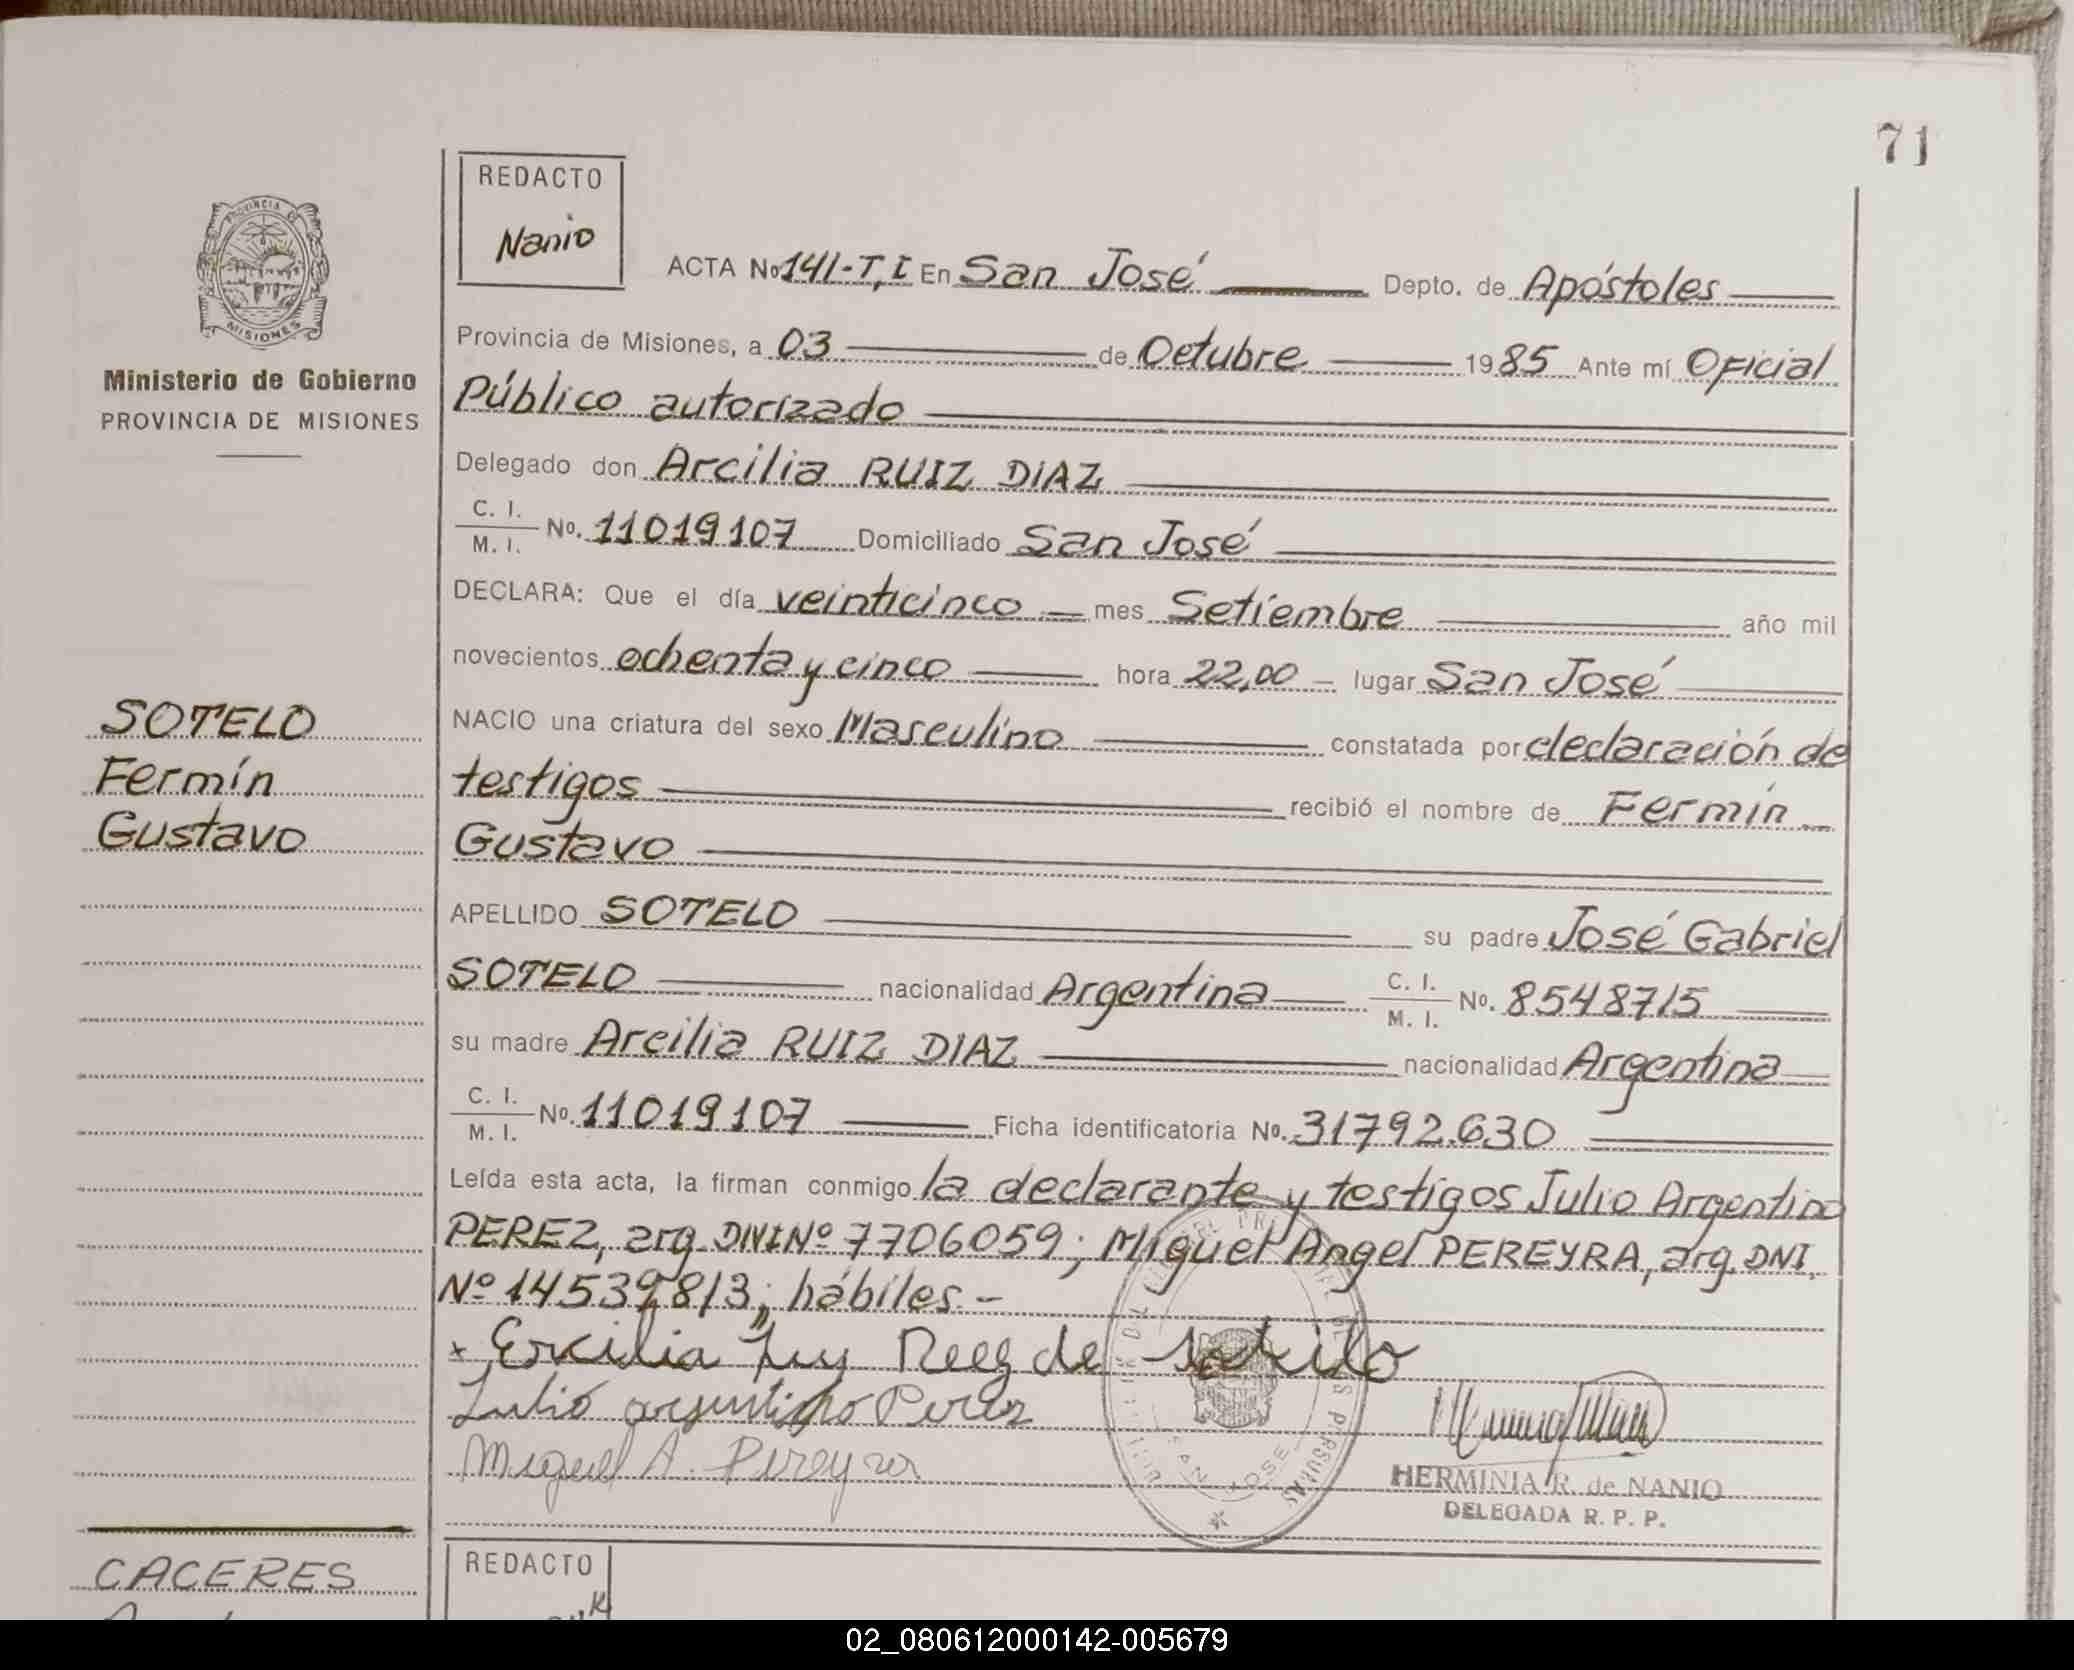 71
REDACTO
Nanio
PROVINCIA DE
MISIONES
Ministerio de Gobierno
PROVINCIA DE MISIONES
ACTA No 141-T,I En San José Depto. de Apóstoles
Provincia de Misiones, a 03 de Octubre 1985 Ante mí Oficial
Público autorizado
Delegado don Arcilia RUIZ DIAZ
C. I.
M. I. No. 11019107 Domiciliado San José
DECLARA: Que el día veinticinco mes Setiembre año mil
novecientos ochenta y cinco hora 22,00 lugar San José
SOTELO
Fermín
Gustavo
NACIO una criatura del sexo Masculino constatada por declaración de
testigos recibió el nombre de Fermín
Gustavo
APELLIDO SOTELO su padre José Gabriel
SOTELO nacionalidad Argentina C. I. M. I. No. 8548715
su madre Arcilia RUIZ DIAZ nacionalidad Argentina
C. I.
M. I. No. 11019107 Ficha identificatoria No. 31792.630
Leída esta acta, la firman conmigo la declarante y testigos Julio Argentino
PEREZ, arg. DNI Nº 7706059; Miguel Angel PEREYRA, arg. DNI.
Nº 14539813; hábiles.-
Julio argentino Perez
Miguel A. Pereyra
SAN JOSE
HERMINIA R. de NANIO
DELEGADA R. P. P.
CACERES
REDACTO
02_080612000142-005679